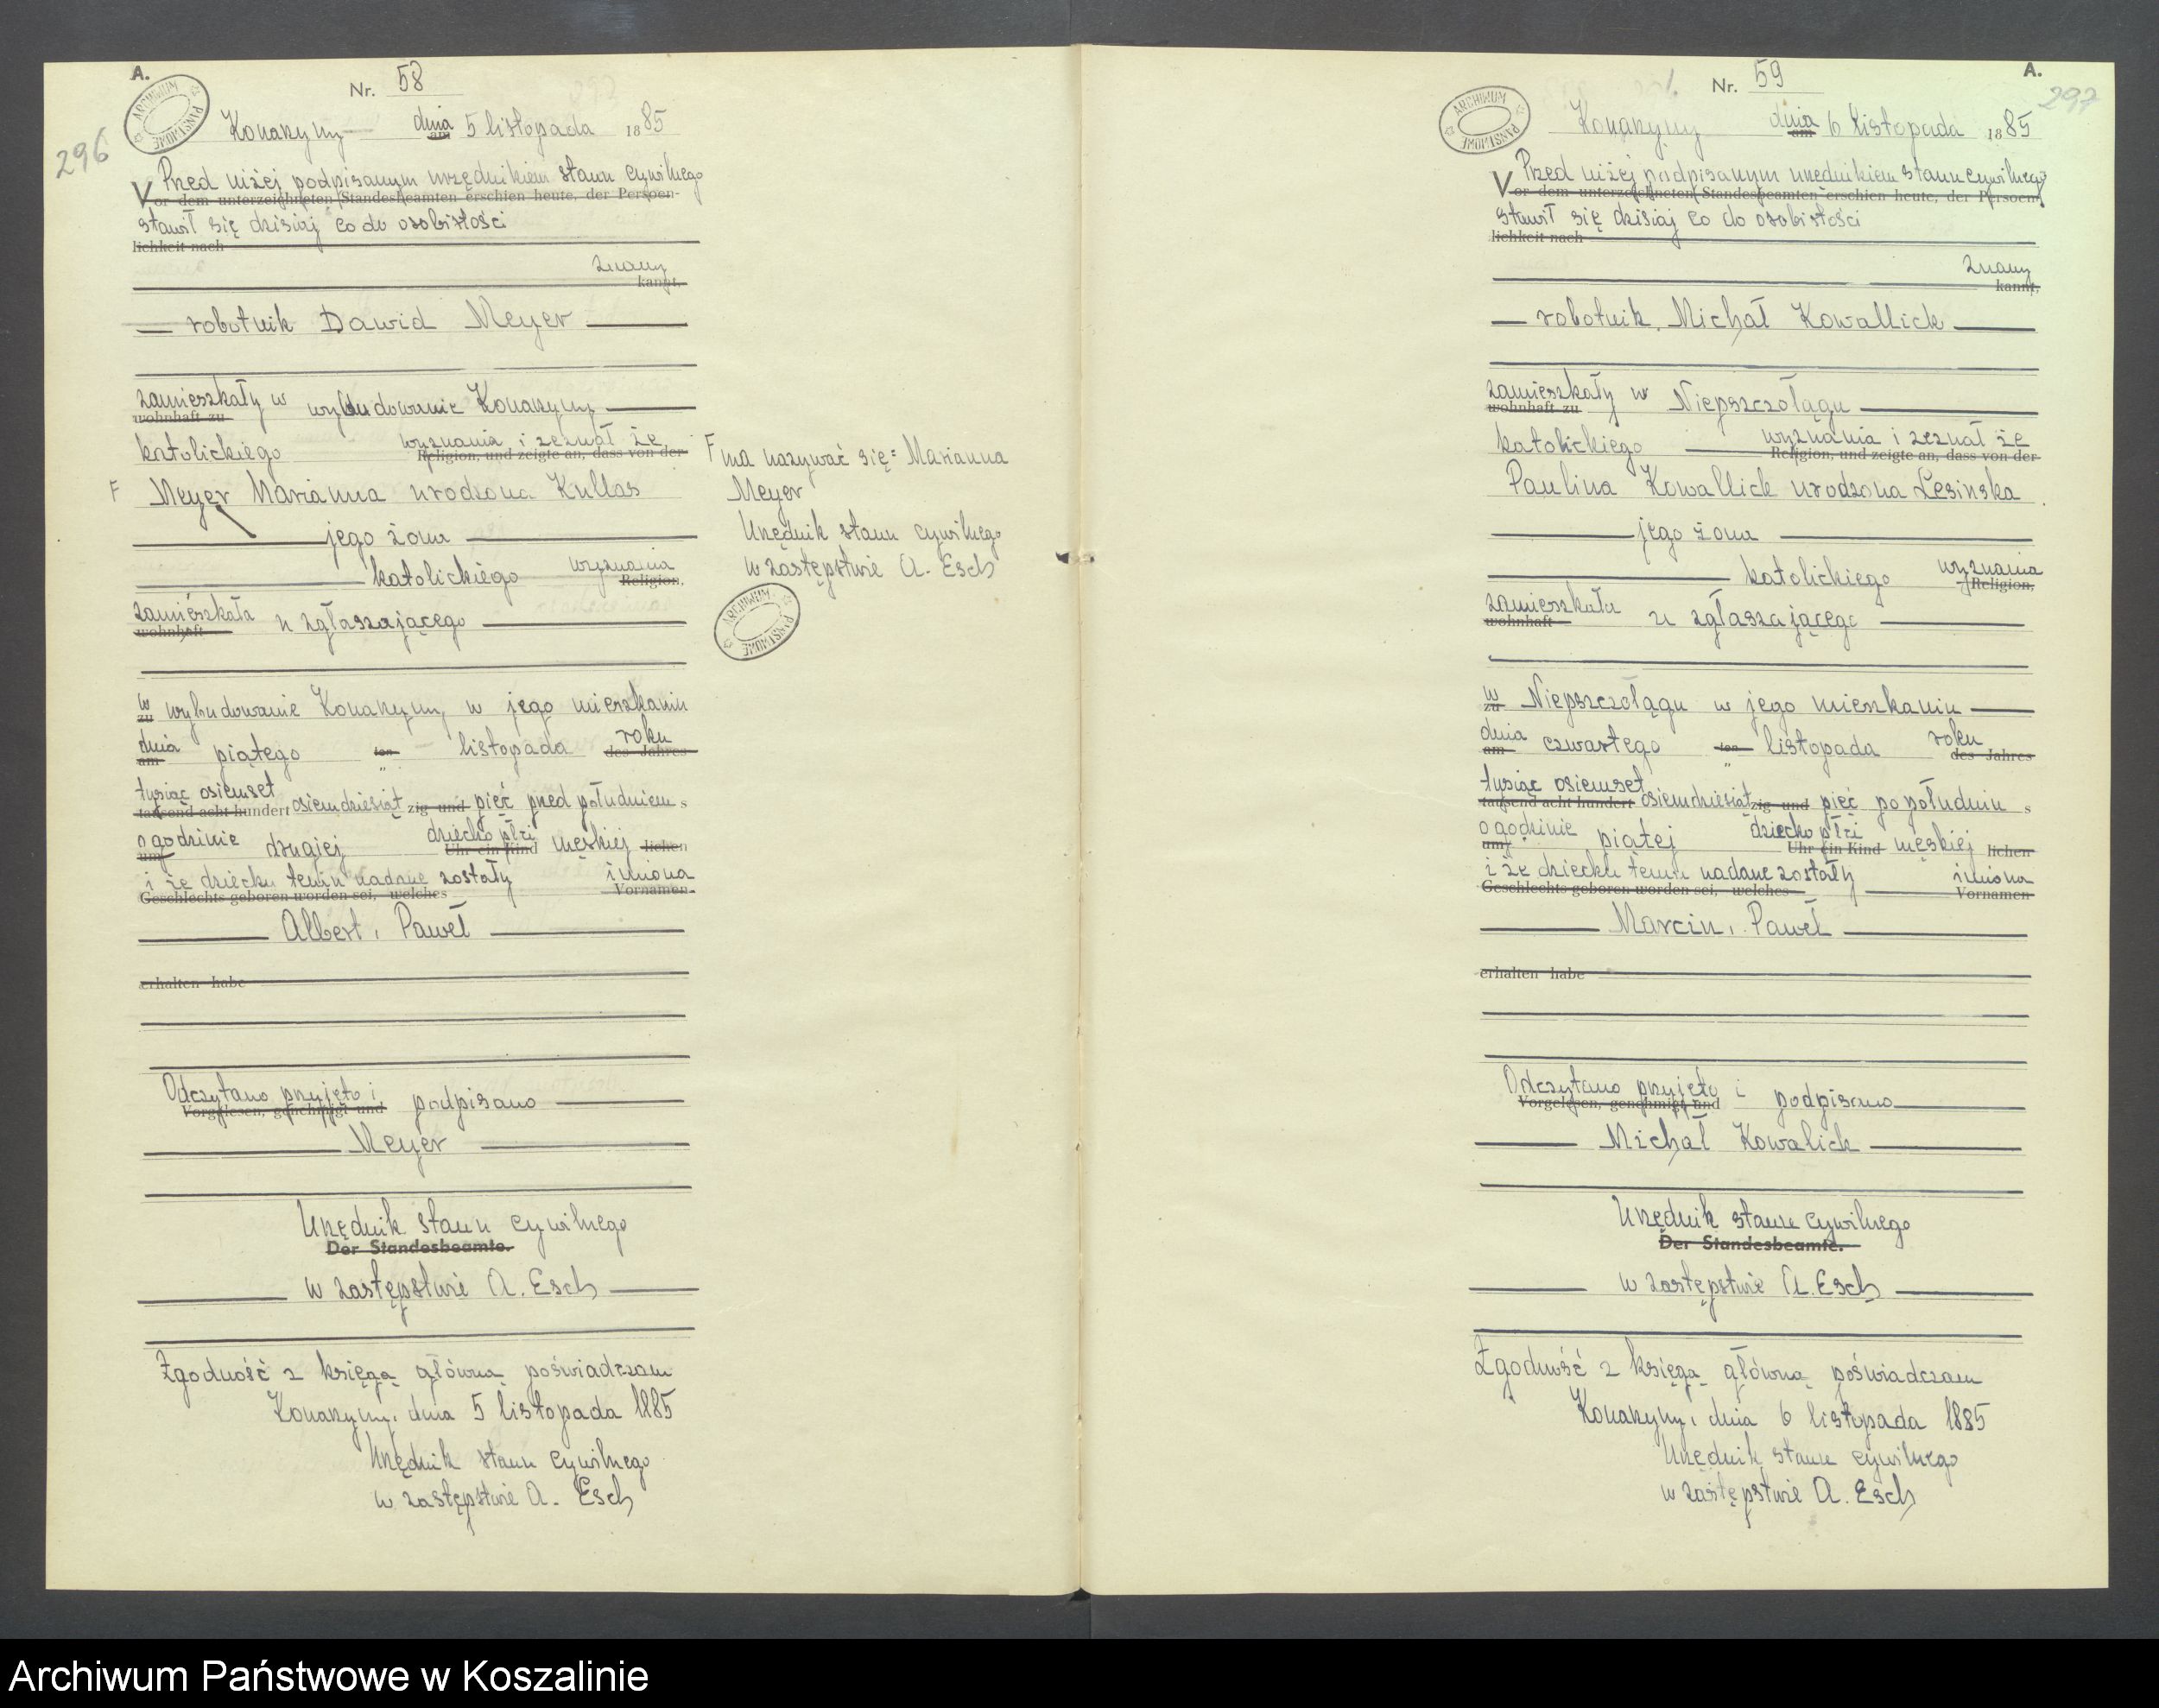 A.
Nr. 58
296
ARCHIWUM PAŃSTWOWE
Konarzyny dnia am 5 listopada 1885
Przed niżej podpisanym urzędnikiem stanu cywilnego
Vor dem unterzeichneten Standesbeamten erschien heute, der Persoen-
stawił się dzisiaj co do osobistości
lichkeit nach
znany
kannt,
robotnik Dawid Meyer
zamieszkały w wybudowanie Konarzyny
wohnhaft zu
katolickiego wyznania i zeznał że
Religion, und zeigte an, dass von der
F Meyer Marianna urodzona Kullas
jego żona
katolickiego wyznania
Religion,
zamieszkała u zgłaszającego
wohnhaft
w wybudowanie Konarzyny, w jego mieszkaniu
zu
dnia piątego listopada roku
am ten des Jahres
tysiąc osiemset
tausend acht hundert osiemdziesiąt zig und pięć przed południem s
o godzinie drugiej dziecko płci męskiej
um Uhr ein Kind lichen
i że dziecku temu nadane zostały imiona
Geschlechts geboren worden sei, welches Vornamen
Albert, Paweł
erhalten habe
Odczytano przyjęto i podpisano
Vorgelesen, genehmigt und
Meyer
Urzędnik stanu cywilnego
Der Standesbeamte.
w zastępstwie A. Esch
Zgodność z księgą główną poświadczam
Konarzyny, dnia 5 listopada 1885
Urzędnik stanu cywilnego
w zastępstwie A. Esch
F ma nazywać się: Marianna
Meyer
Urzędnik stanu cywilnego
w zastępstwie A. Esch
ARCHIWUM PAŃSTWOWE
A.
Nr. 59
297
ARCHIWUM PAŃSTWOWE
Konarzyny dnia am 6 listopada 1885
Przed niżej podpisanym urzędnikiem stanu cywilnego
Vor dem unterzeichneten Standesbeamten erschien heute, der Persoen-
stawił się dzisiaj co do osobistości
lichkeit nach
znany
kannt,
robotnik Michał Kowallick
zamieszkały w Niepszczołągu
wohnhaft zu
katolickiego wyznania i zeznał że
Religion, und zeigte an, dass von der
Paulina Kowallick urodzona Lesinska
jego żona
katolickiego wyznania
Religion,
zamieszkała u zgłaszającego
wohnhaft
w Niepszczołągu w jego mieszkaniu
zu
dnia czwartego listopada roku
am ten des Jahres
tysiąc osiemset
tausend acht hundert osiemdziesiąt zig und pięć po południu s
o godzinie piątej dziecko płci męskiej
um Uhr ein Kind lichen
i że dziecku temu nadane zostały imiona
Geschlechts geboren worden sei, welches Vornamen
Marcin, Paweł
erhalten habe
Odczytano przyjęto i podpisano
Vorgelesen, genehmigt und
Michał Kowalick
Urzędnik stanu cywilnego
Der Standesbeamte.
w zastępstwie A. Esch
Zgodność z księgą główną poświadczam
Konarzyny, dnia 6 listopada 1885
Urzędnik stanu cywilnego
w zastępstwie A. Esch
Archiwum Państwowe w Koszalinie